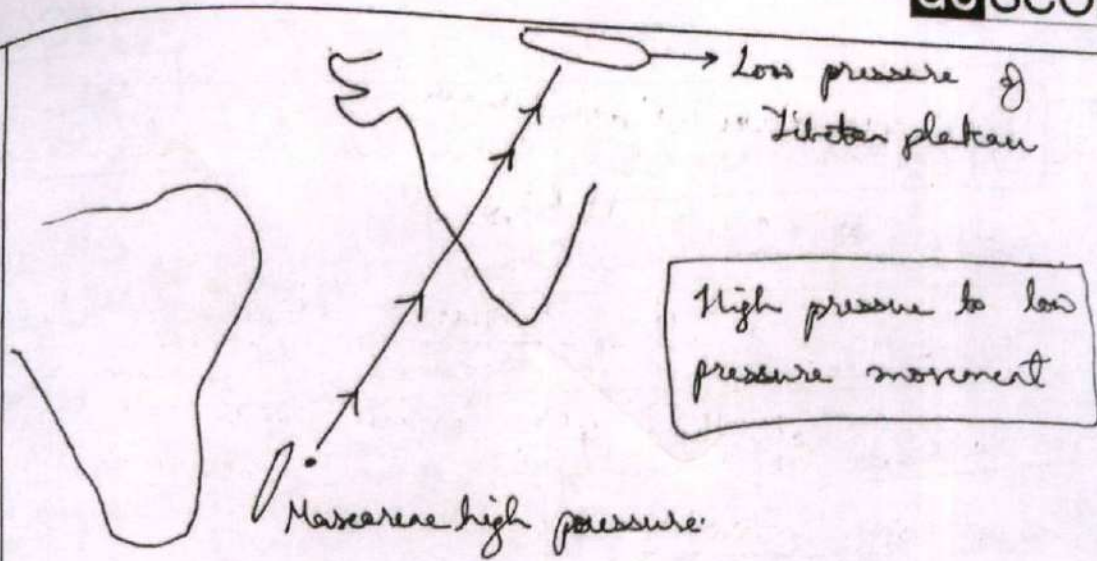 Low pressure of
Tibetan plateau
High pressure to low
pressure movement
Mascarene high pressure.